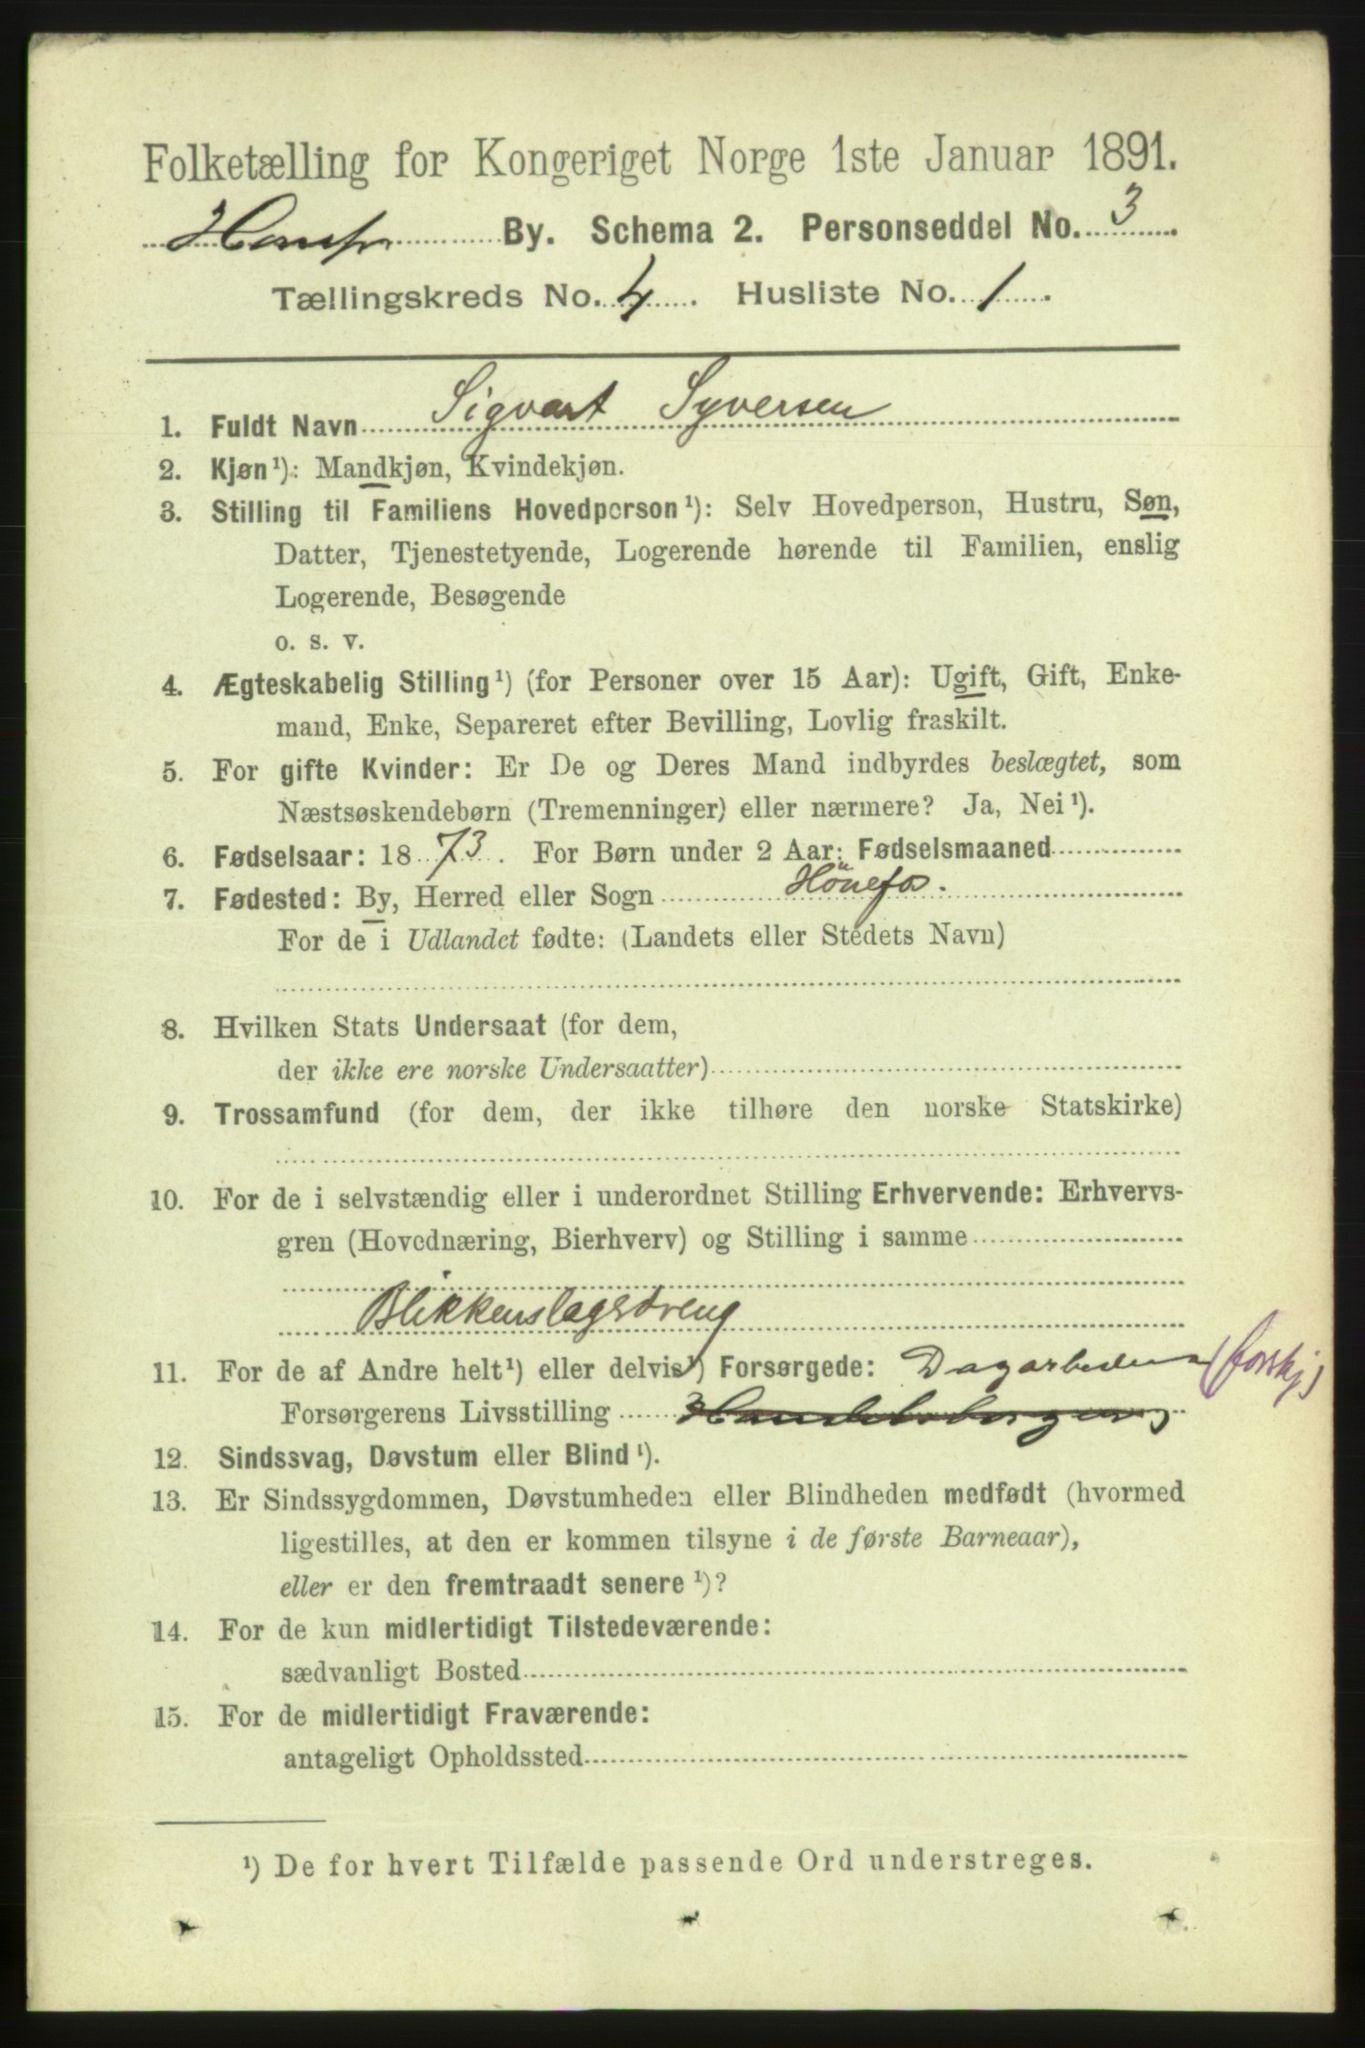 Folketælling for Kongeriget Norge 1ste Januar 1891.
By. Schema 2. Personseddel No. 3.
Tællingskreds No. 4. Husliste No. 1.
1. Fuldt Navn Sigvart Syversen
2. Kjøn¹): Mandkjøn, Kvindekjøn.
3. Stilling til Familiens Hovedperson¹): Selv Hovedperson, Hustru, Søn,
Datter, Tjenestetyende, Logerende hørende til Familien, enslig
Logerende, Besøgende
o. s. v.
4. Ægteskabelig Stilling¹) (for Personer over 15 Aar): Ugift, Gift, Enke-
mand, Enke, Separeret efter Bevilling, Lovlig fraskilt.
5. For gifte Kvinder: Er De og Deres Mand indbyrdes beslægtet, som
Næstsøskendebørn (Tremenninger) eller nærmere? Ja, Nei¹).
6. Fødselsaar: 1873. For Børn under 2 Aar: Fødselsmaaned
7. Fødested: By, Herred eller Sogn Hönefos.
For de i Udlandet fødte: (Landets eller Stedets Navn)
8. Hvilken Stats Undersaat (for dem,
der ikke ere norske Undersaatter)
9. Trossamfund (for dem, der ikke tilhøre den norske Statskirke)
10. For de i selvstændig eller i underordnet Stilling Erhvervende: Erhvervs-
gren (Hovednæring, Bierhverv) og Stilling i samme
Blikkenslagerdreng
11. For de af Andre helt¹) eller delvis¹) Forsørgede: Dagarbeider (forskj)
Forsørgerens Livsstilling Handelsborger
12. Sindssvag, Døvstum eller Blind¹).
13. Er Sindssygdommen, Døvstumheden eller Blindheden medfødt (hvormed
ligestilles, at den er kommen tilsyne i de første Barneaar),
eller er den fremtraadt senere¹)?
14. For de kun midlertidigt Tilstedeværende:
sædvanligt Bosted
15. For de midlertidigt Fraværende:
antageligt Opholdssted
¹) De for hvert Tilfælde passende Ord understreges.